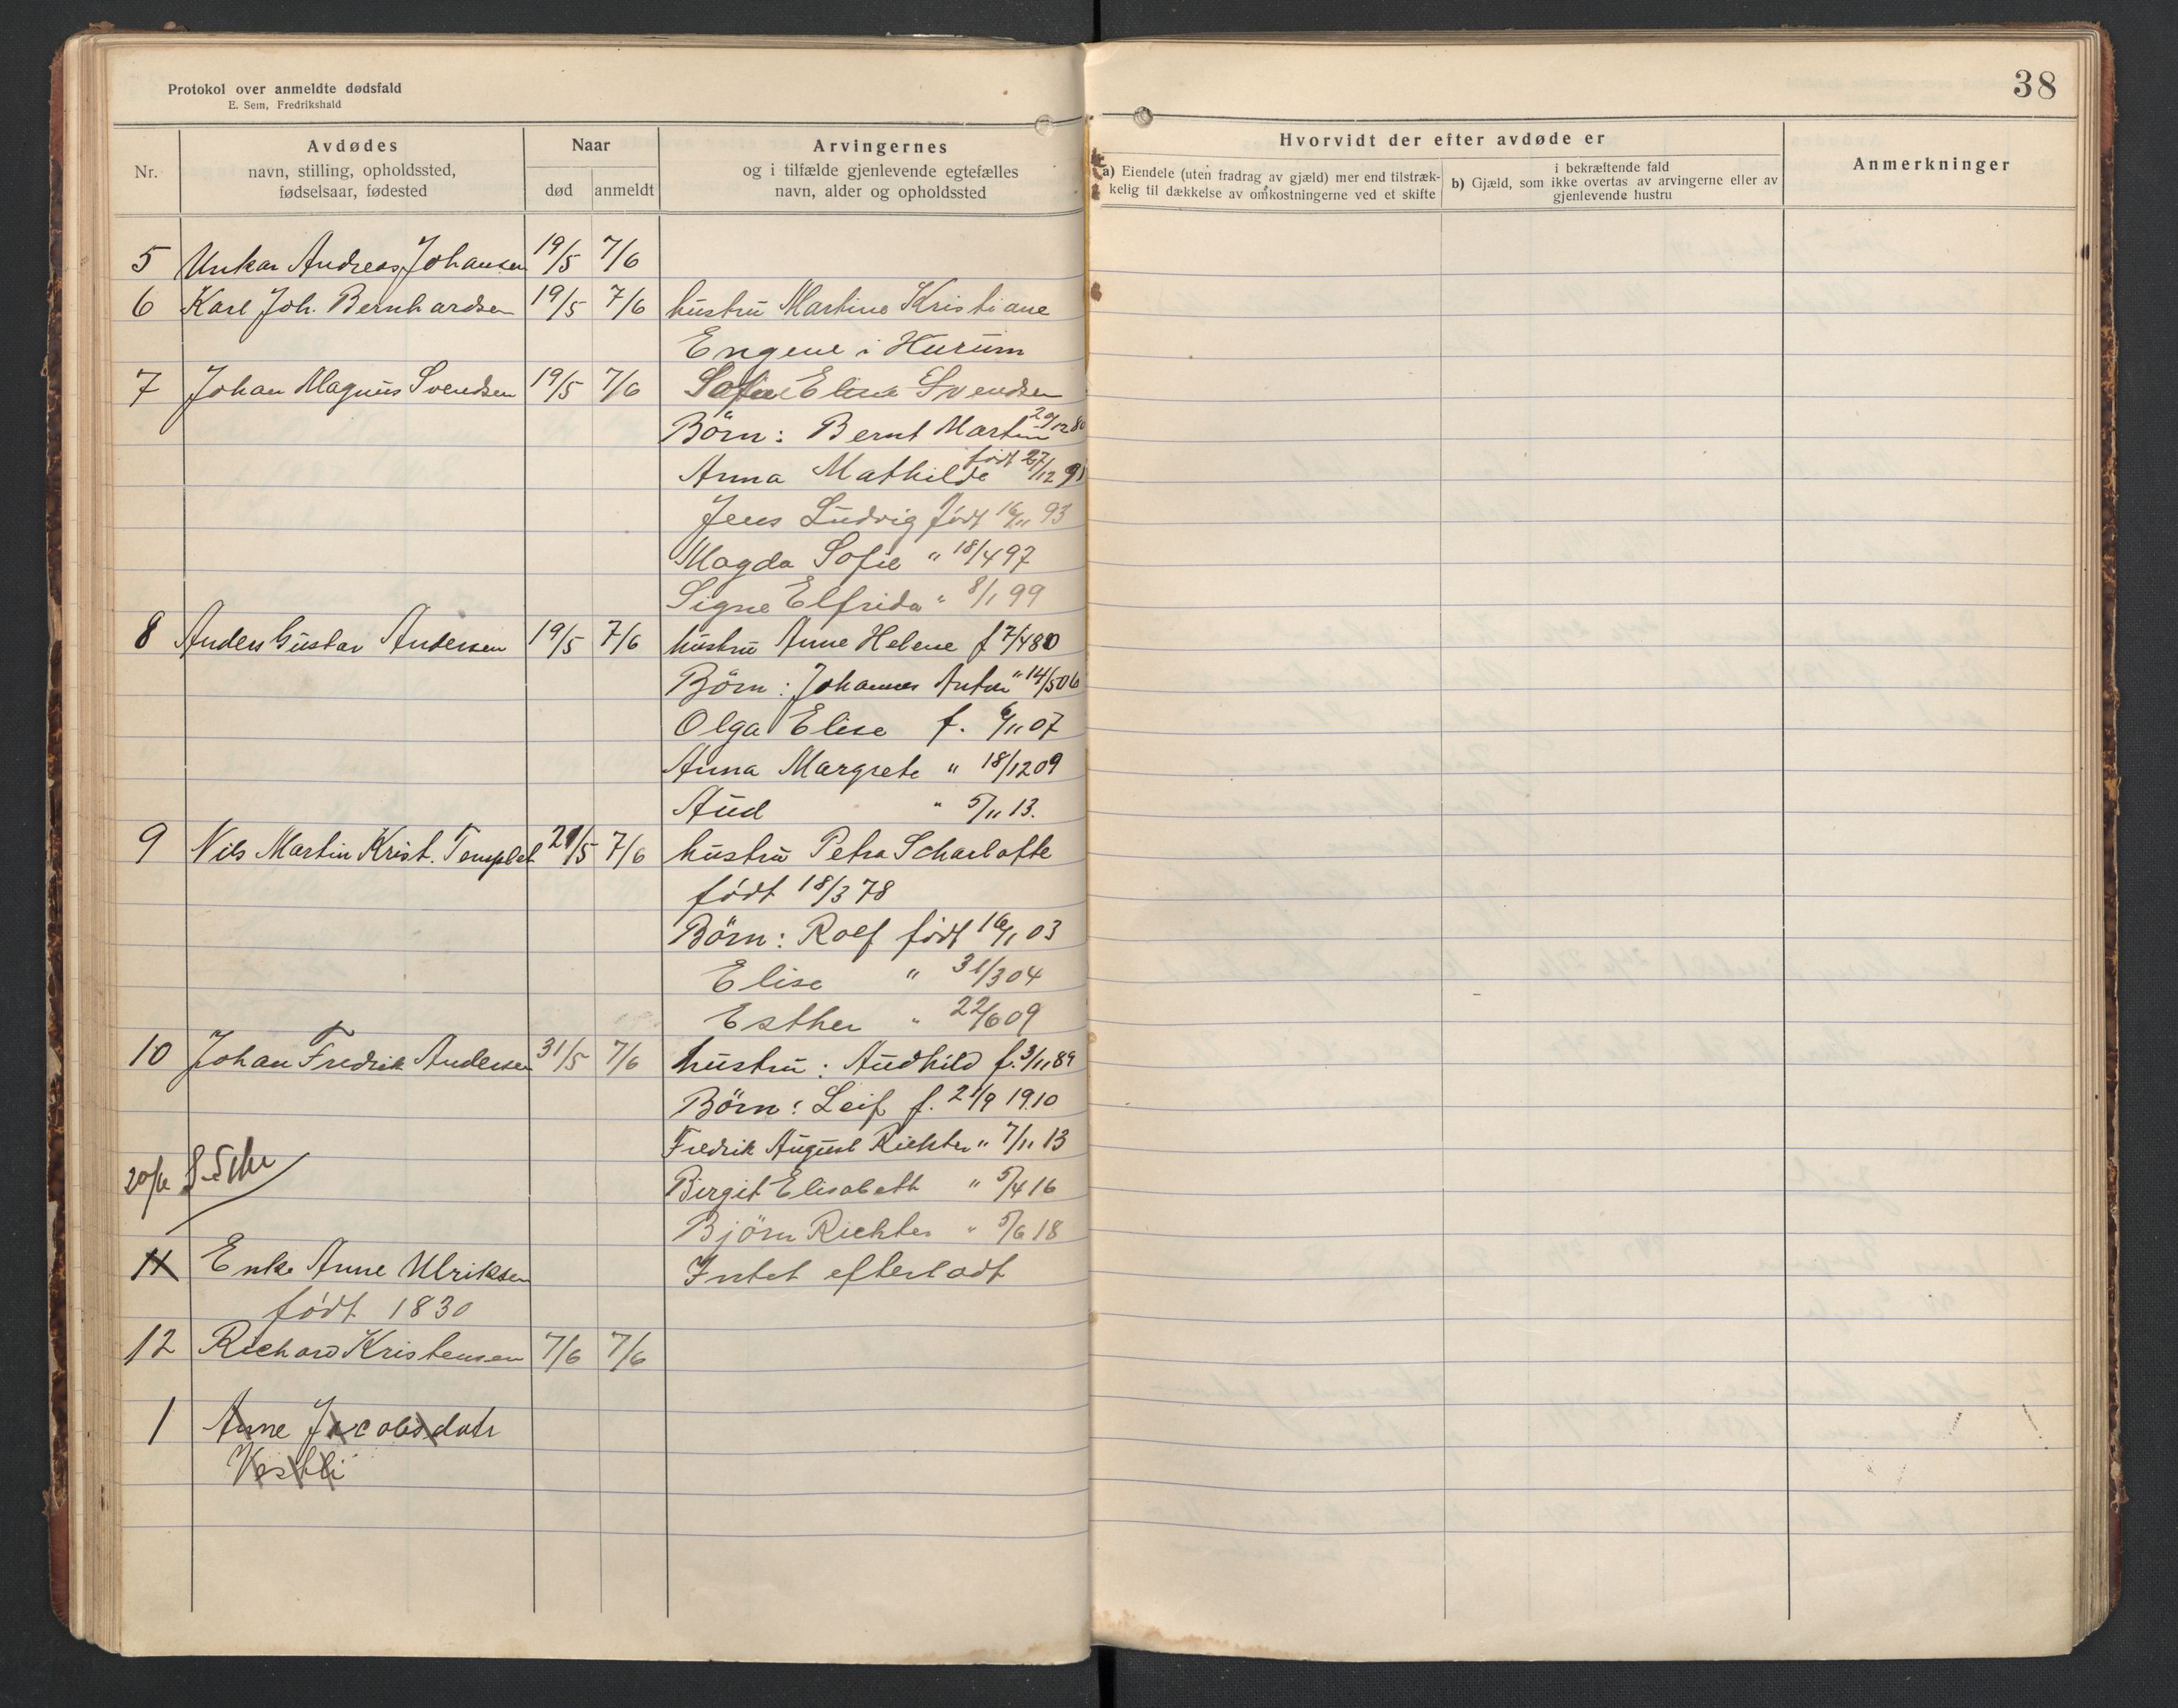 Protokol over anmeldte dødsfald
E. Sem, Fredrikshald
38
Nr.
Avdødes
navn, stilling, opholdssted,
fødselsaar, fødested
Naar
død
anmeldt
Arvingernes
og i tilfælde gjenlevende egtefælles
navn, alder og opholdssted
Hvorvidt der efter avdøde er
a) Eiendele (uten fradrag av gjæld) mer end tilstræk-
kelig til dækkelse av omkostningerne ved et skifte
i bekræftende fald
b) Gjæld, som ikke overtas av arvingerne eller av
gjenlevende hustru
Anmerkninger
5 Unkar Andreas Johansen 19/5 7/6
6 Karl Joh. Bernhardsen 19/5 7/6 hustru Martine Kristiane
Engene i Hurum
7 Johan Magnus Svendsen 19/5 7/6 Sofie Eline Svendsen
Börn: Bernt Martin 29/12 80
Anna Mathilde født 27/12 91
Jens Ludvig født 16/11 93
Magda Sofie " 18/4 97
Signe Elfrida " 8/1 99
8 Anders Gustav Andersen 19/5 7/6 hustru Anne Helene f 7/4 80
Börn: Johannes Anton " 14/5 06
Olga Elise f. 6/11 07
Anna Margrete " 18/12 09
Aud " 5/11 13.
9 Nils Martin Krist. 29/5 7/6 hustru Petra Scharlotte
født 18/3 78
Börn: Rolf født 16/1 03
Elise " 31/3 04
Esther " 22/6 09
10 Johan Fredrik Andersen 31/5 7/6 hustru: Audhild f. 3/11 89
Börn: Leif f. 21/9 1910
Fredrik August Richter " 7/11 13
20/6
Birgit Elisabeth " 5/4 16
Björn Richter " 5/6 18
11 Enke Anne Ulriksen Intet efterladt
født 1830
12 Richard Kristensen 7/6 7/6
1 Anne Jacobsdatr
Vestli